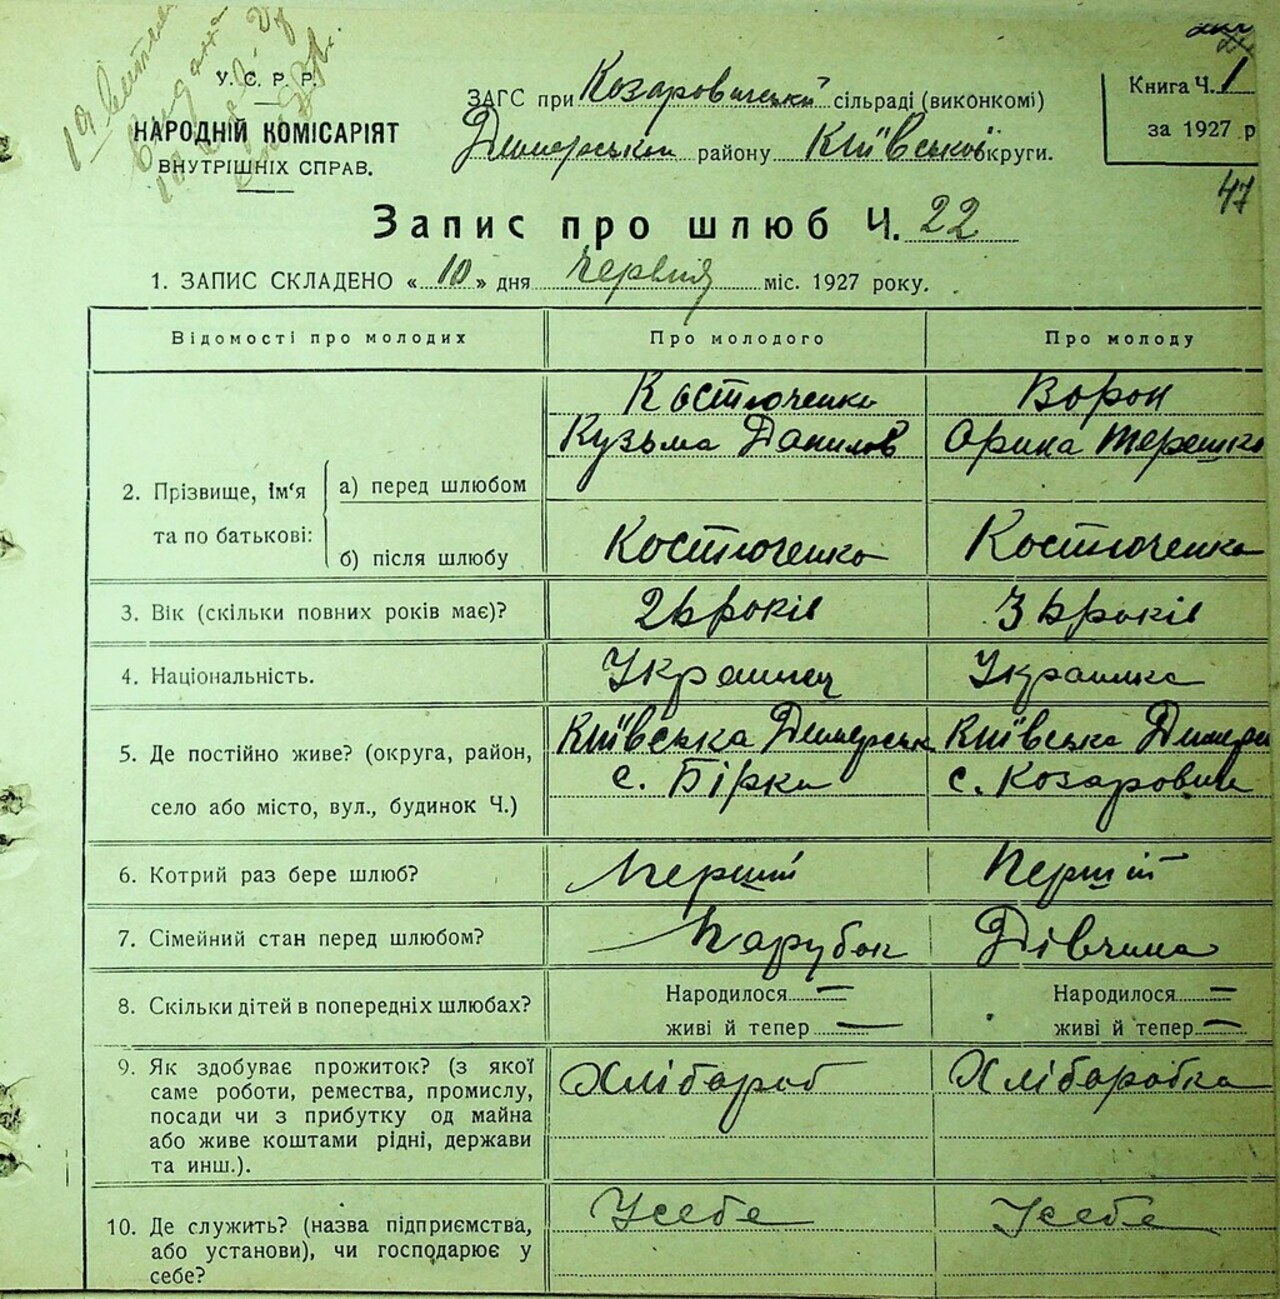 У. С. Р. Р.
НАРОДНІЙ КОМІСАРІЯТ
ВНУТРІШНІХ СПРАВ.
ЗАГС при Козаровицькій сільраді (виконкомі)
Димерського району Київської округи.
Книга Ч. 1
за 1927 р
47
Запис про шлюб Ч. 22
1. ЗАПИС СКЛАДЕНО « 10 » дня червня міс. 1927 року.
Відомості про молодих Про молодого Про молоду
Костюченко Ворон
Кузьма Данилов Орина Терешко
2. Прізвище, ім'я та по батькові:
а) перед шлюбом
б) після шлюбу Костюченко Костюченко
3. Вік (скільки повних років має)? років років
4. Національність. Українец Українка
5. Де постійно живе? (округа, район, Київська Димерськ Київська Димерс
село або місто, вул., будинок Ч.) с. Бірки с. Козаровичи
6. Котрий раз бере шлюб? Перший Перший
7. Сімейний стан перед шлюбом? Парубок Дівчина
8. Скільки дітей в попередніх шлюбах? Народилося — Народилося —
живі й тепер — живі й тепер —
9. Як здобуває прожиток? (з якої Хлібороб Хліборобка
саме роботи, ремества, промислу,
посади чи з прибутку од майна
або живе коштами рідні, держави
та инш.).
10. Де служить? (назва підприємства, У себе У себе
або установи), чи господарює у
себе?